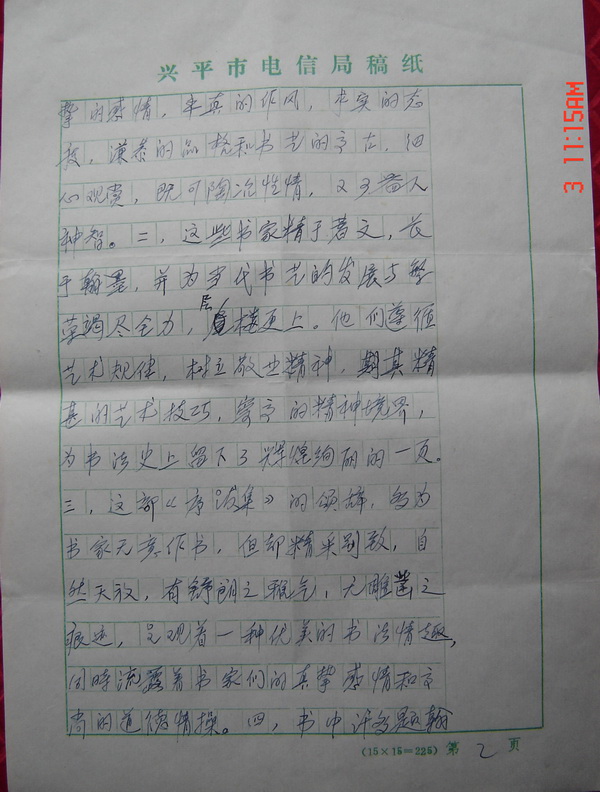 兴平市电信局稿纸
挚的感情，率真的作风，求实的态
度，谦恭的品格和书艺的高古，细
心观赏，既可陶冶性情，又可益人
神智。二，这些书家精于著文，长
于翰墨，并为当代书艺的发展与繁
荣竭尽全力，层楼更上。他们遵循
艺术规律，树立敬业精神，期其精
甚的艺术技巧，崇高的精神境界，
为书法史上留下了辉煌绚丽的一页。
三，这部《集》的颂辞，多为
书家无意作书，但却精采别致，自
然天放，有舒朗之雅气，无雕凿之
痕迹，呈现着一种优美的书法情趣，
同时流露着书家们的真挚感情和高
尚的道德情操。四，书中许多题翰
(15×15=225) 第 2 页
3 11:15AM